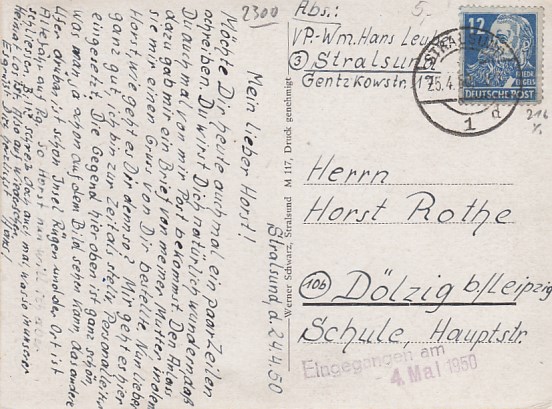 2300
5,-
Abs.:
VP.-Wm. Hans
③ Stralsund
Gentzkowstr.
12
FRIEDR. ENGELS
DEUTSCHE POST
25.4.
1 d
216
Herrn
Horst Rothe
10b Dölzig b/Leipzig
Schule, Hauptstr.
Eingegangen am
- 4. Mai 1950
Werner Schwarz, Stralsund M 117, Druck genehmigt
Stralsund, d. 24.4.50
Mein lieber Horst!
Möchte Dir heute auch mal ein paar Zeilen
schreiben. Du wirst Dich natürlich wundern daß
Du auch mal von mir Post bekommst. Den Anlass
dazu gab mir ein Brief von meiner Mutter indem
sie mir einen Gruss von Dir bestellte. Nun lieber
Horst wie geht es Dir denn so? Mir geht es hier
ganz gut, ich bin zur Zeit als stellv. Personalleiter
eingesetzt. Die Gegend hier oben ist ganz schön,
was man ja schon auf dem Bild sehen kann, das andere
Ufer drüben ist schon Insel Rügen und der Ort ist
Altefähr auf Rg. So Horst nun will ich aber
schliessen, Bitte schreibe doch auch mal was so in unserer
Heimat
Es grüsst Dich herzlichst Hans!